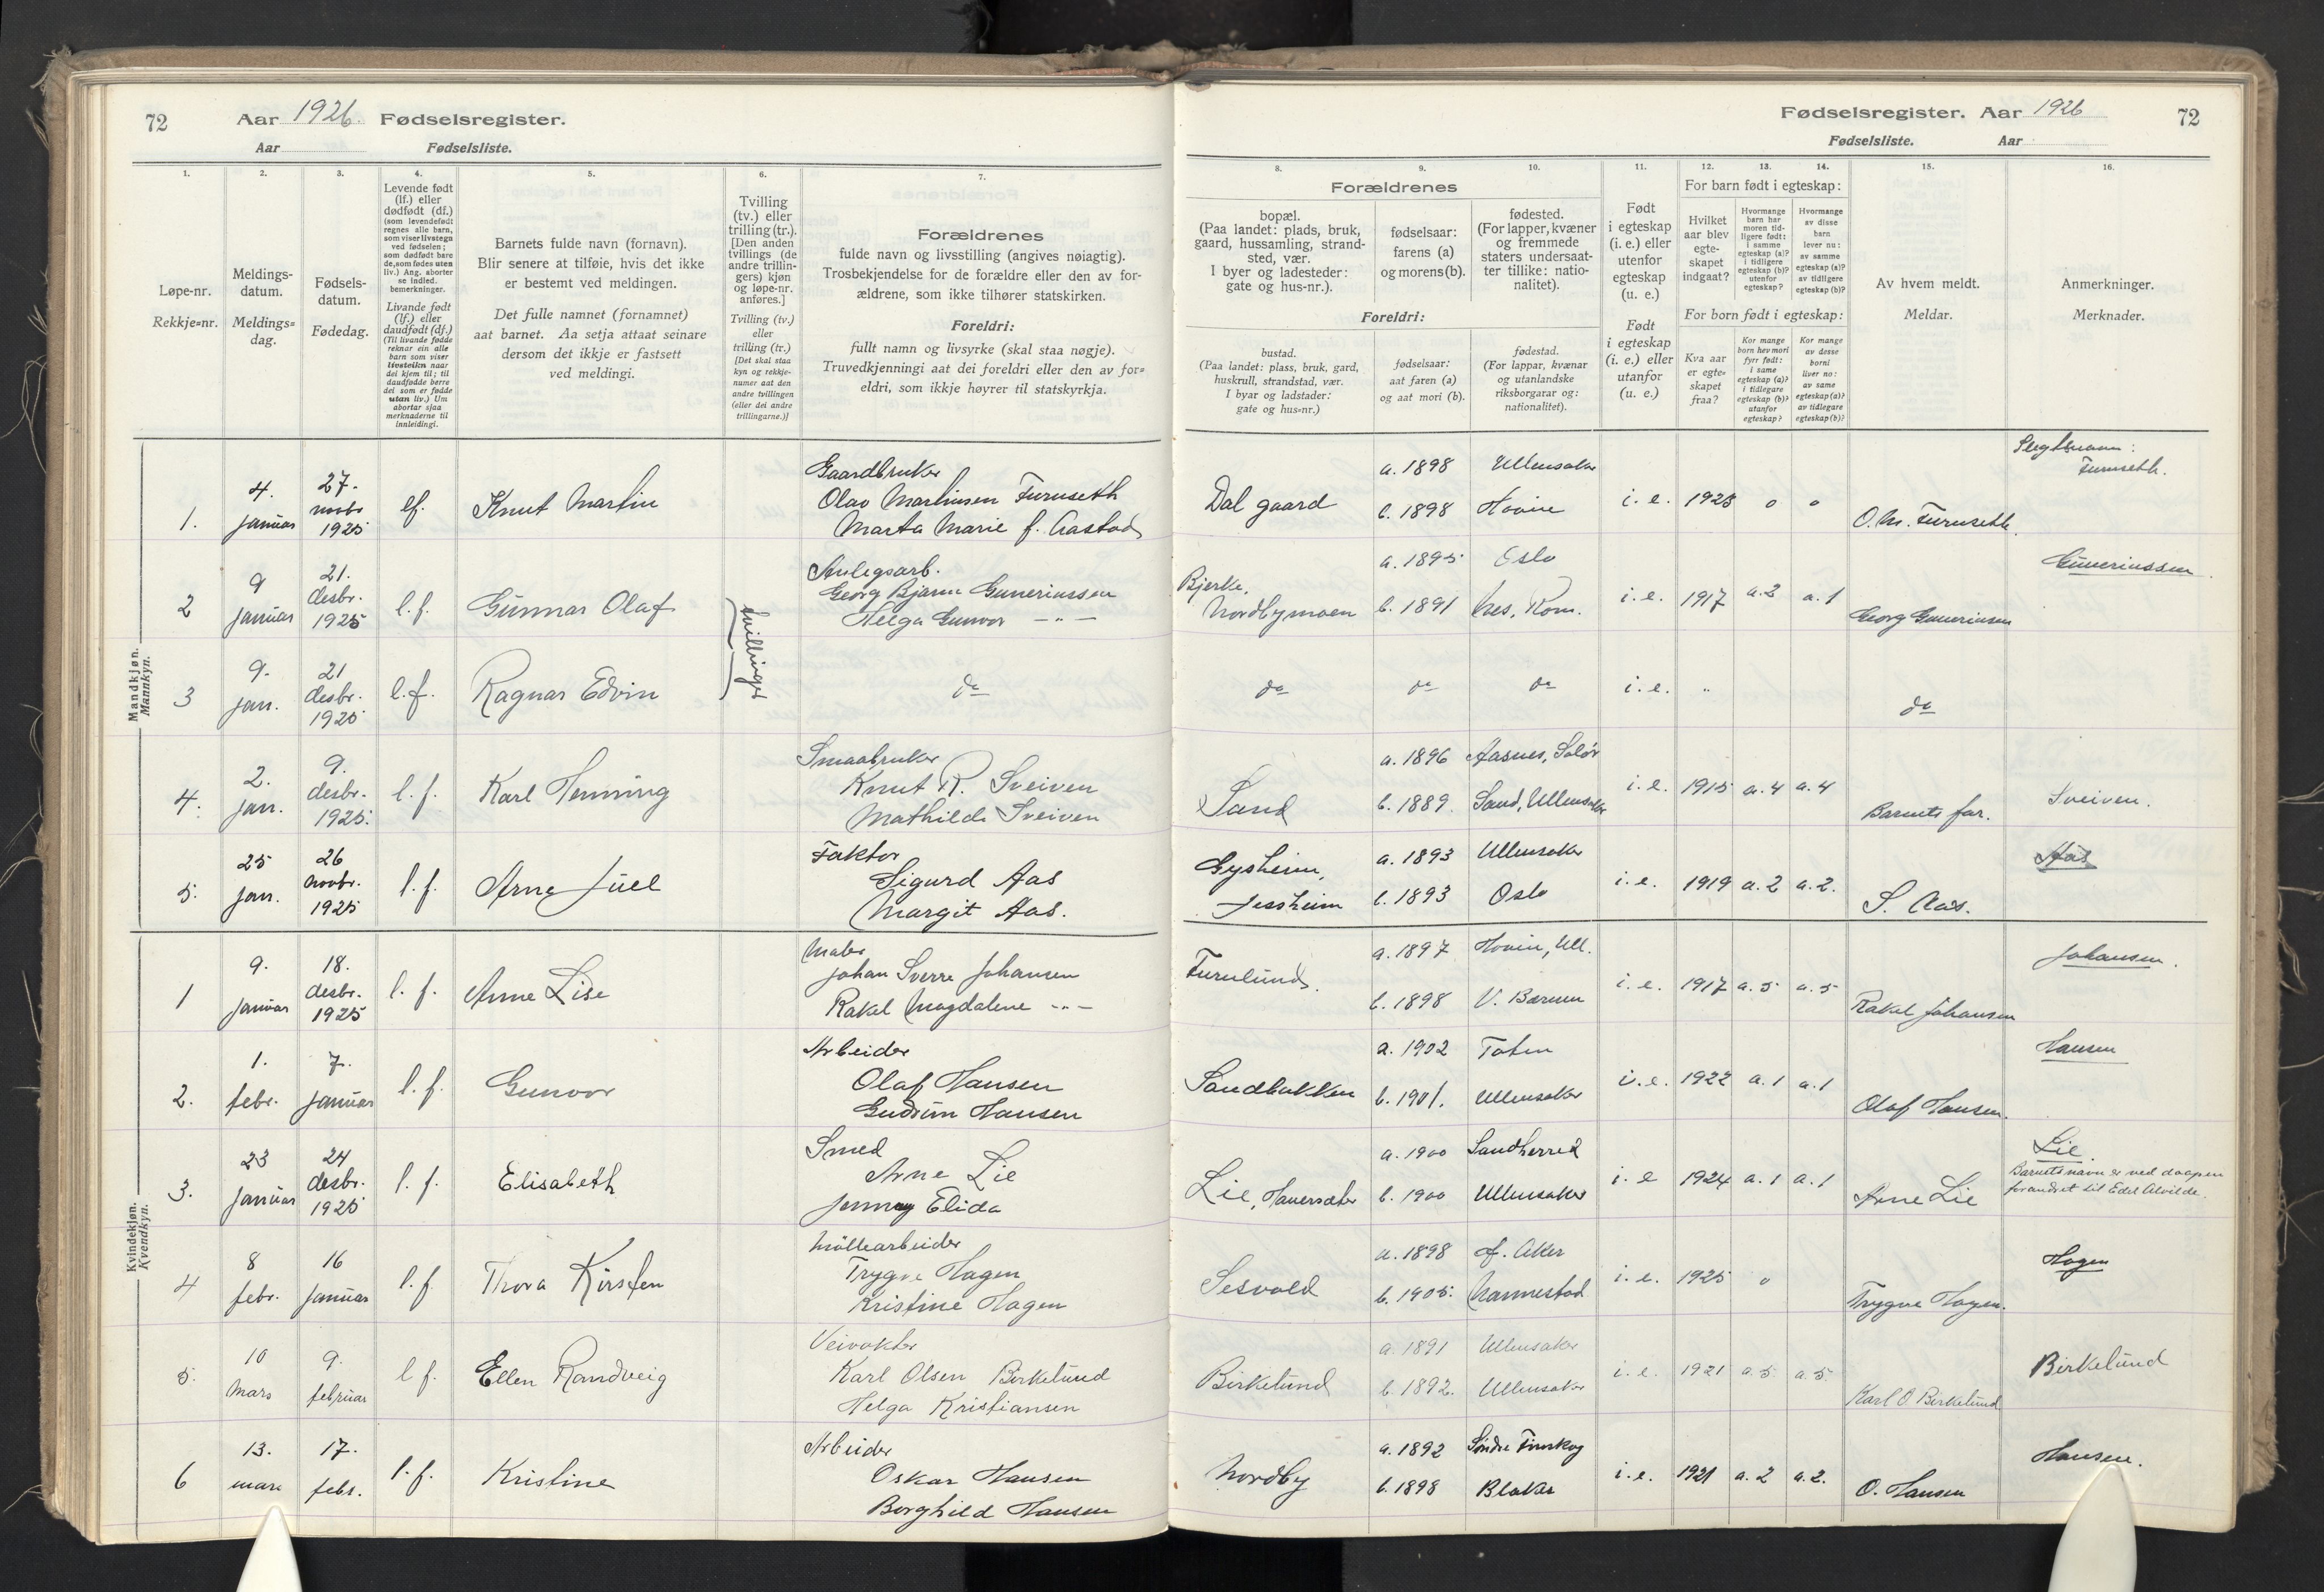 72
Aar 1926. Fødselsregister.
Aar
Fødselsliste.
Fødselsregister. Aar 1926
72
Fødselsliste. Aar
1.
Løpe-nr.
Rekkje=nr.
2.
Meldings-
datum.
Meldings=
dag.
3.
Fødsels-
datum.
Fødedag.
4.
Levende født
(lf.) eller
dødfødt (df.)
(som levendefødt
regnes alle barn,
som viser livstegn
ved fødselen;
som dødfødt bare
de, som fødes uten
liv.) Ang. aborter
se indled.
bemerkninger.
Livande født
(lf.) eller
daudfødt (df.)
(Til livande fødde
reknar ein alle
barn som viser
livsteikn naar
dei kjem til; til
daudfødde berre
dei som er fødde
utan liv.) Um
abortar sjaa
merknaderne til
innleidingi.
5.
Barnets fulde navn (fornavn).
Blir senere at tilføie, hvis det ikke
er bestemt ved meldingen.
Det fulle namnet (fornamnet)
aat barnet. Aa setja attaat seinare
dersom det ikkje er fastsett
ved meldingi.
6.
Tvilling
(tv.) eller
trilling (tr.).
[Den anden
tvillings (de
andre trillin-
gers) kjøn
og løpe-nr.
anføres.]
Tvilling (tv.)
eller
trilling (tr.)
[Det skal staa
kyn og rekkje-
numer aat den
andre tvillingen
(eller dei andre
trillingarne.)]
7.
Forældrenes
fulde navn og livsstilling (angives nøiagtig).
Trosbekjendelse for de forældre eller den av for-
ældrene, som ikke tilhører statskirken.
Foreldri:
fullt namn og livsyrke (skal staa nøgje).
Truvedkjenningi aat dei foreldri eller den av for=
eldri, som ikkje høyrer til statskyrkja.
8.
Forældrenes
bopæl.
(Paa landet: plads, bruk,
gaard, hussamling, strand-
sted, vær.
I byer og ladesteder:
gate og hus-nr.).
Foreldri:
bustad.
(Paa landet: plass, bruk, gard,
huskrull, strandstad, vær.
I byar og ladstader:
gate og hus=nr.)
9.
fødselsaar:
farens (a)
og morens (b).
fødselsaar:
aat faren (a)
og aat mori (b).
10.
fødested.
(For lapper, kvæner
og fremmede
staters undersaat-
ter tillike: natio-
nalitet).
fødestad.
(For lappar, kvænar
og utanlandske
riksborgarar og:
nationalitet).
11.
Født
i egteskap
(i. e.) eller
utenfor
egteskap
(u. e.)
Født
i egteskap
(i. e.) eller
utanfor
(u. e.)
12.
13.
14.
For barn født i egteskap:
Hvilket
aar blev
egte-
skapet
indgaat?
Hvormange
barn har
moren tid-
ligere født:
i samme
egteskap (a)?
i tidligere
egteskap (b)?
utenfor
egteskap?
Hvormange
av disse
barn
lever nu:
av samme
egteskap (a)?
av tidligere
egteskap (b)?
For born født i egteskap:
Kva aar
er egte=
skapet
fraa?
Kor mange
born hev mori
fyrr født:
i same
egteskap (a)?
i tidlegare
egteskap (b)?
utanfor
egteskap?
Kor mange
av desse
borni
liver no:
av same
egteskap (a)?
av tidlegare
egteskap (b)?
15.
Av hvem meldt.
Meldar.
16.
Anmerkninger.
Merknader.
Mandkjøn.
Mannkyn.
1. 4. januar 27. novbr 1925 lf. Knut Martin
Gaardbruker
Olav Martinsen Furuseth
Marta Marie f. Aastad
Dal gaard a. 1898 Ullensaker
b. 1898 Hovin
i. e. 1925 0 0 O. M. Furuseth.
Slegtsnavn:
Furuseth.
2 9 januar 21. desbr. 1925 l.f. Gunnar Olaf
tvillinger
Anlegsarb.
Georg Bjarne Guneriussen
Helga Gunvor —"—
Bjerke, Nordbymoen a. 1895 Oslo
b. 1891 Nes, Rom.
i. e. 1917 a.2 a.1 Georg Guneriusen
Guneriussen.
3 9. jan. 21 desbr. 1925 l.f. Ragnar Edvin
do do do do i. e. " do
4. 2. jan. 9. desbr. 1925. l. f. Karl Henning
Smaabruker
Knut R. Sveiven
Mathilde Sveiven
Sand a. 1896 Aasnes, Solør
b. 1889. Sand, Ullensaker
i. e. 1915 a.4 a.4 Barnets far. Sveiven.
5. 25 jan. 26 novbr. 1925 l. f. Arne Juel
Faktor
Sigurd Aas
Margit Aas.
Gysheim, Jessheim a. 1893 Ullensaker
b. 1893 Oslo
i. e. 1919 a.2 a.2. S. Aas. Aas
Kvindekjøn.
Kvendkyn.
1 9. januar 18. desbr. 1925 l. f. Anne Lise
Maler
Johan Sverre Johansen
Rakel Magdalene —"—
Furulund. a. 1897 Hovin, Ull.
b. 1898 V. Bærum
i. e. 1917 a.5 a.5 Rakel Johansen Johansen.
2. 1. febr. 7. januar l. f. Gunvor
Arbeider
Olaf Hansen
Gudrun Hansen
Sandbakken a. 1902 Toten
b. 1901. Ullensaker
i. e. 1922 a.1 a.1 Olaf Hansen. Hansen
3. 23 januar 24 desbr. 1925 l. f. Elisabeth
Smed
Arne Lie
Jenny Elida
Lie, a. 1900 Sandherred
b. 1900 Ullensaker
i. e 1924 a.1 a.1 Arne Lie
Lie
Barnets navn er ved daapen
forandret til Edel Alvilde.
4 8 febr. 16 januar l. f. Thora Kirsten
Møllearbeider
Trygve Hagen
Kristine Hagen
Sesvold a. 1898 Aker
b. 1905. Nannestad
i. e. 1925 0 Trygve Hagen. Hagen
5. 10 mars 9. februar l f. Ellen Randveig
Veivokter
Karl Olsen Birkelund
Helga Kristiansen
Birkelund a. 1891 Ullensaker
b. 1892. Ullensaker
i. e. 1921 a.5. a.5. Karl O Birkelund Birkelund
6 13. mars 17. febr. l. f. Kristine
Arbeider
Oskar Hansen
Borghild Hansen
Nordby a. 1892 Søndre Finskog
b. 1898 Blaker
i. e. 1921 a.2 a.2. O. Hansen Hansen.